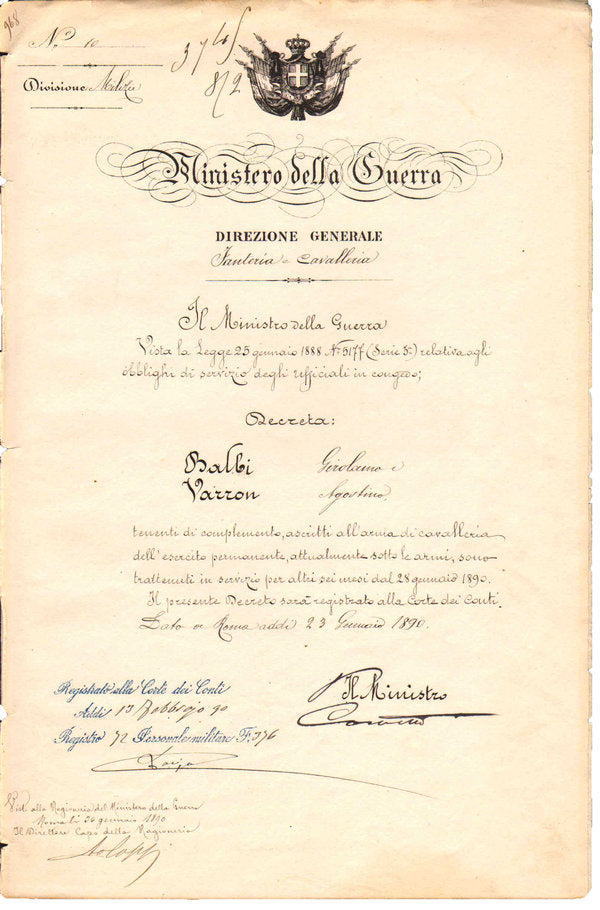 968
N.º 10
Divisione Milizie
Ministero della Guerra
DIREZIONE GENERALE
Fanteria e Cavalleria
Il Ministro della Guerra
Vista la Legge 25 gennaio 1888 Nº 5177 (Serie 3ª) relativa agli
obblighi di servizio degli ufficiali in congedo;
Decreta:
Balbi Girolamo e
Varron Agostino
tenenti di complemento, ascritti all'arma di cavalleria
dell'esercito permanente, attualmente sotto le armi, sono
trattenuti in servizio per altri sei mesi dal 28 gennaio 1890.
Il presente Decreto sarà registrato alla Corte dei Conti.
Dato a Roma addì 23 Gennaio 1890.
Il Ministro
Registrato alla Corte dei Conti
Addì 13 Febbrajo 90
Registro 72 Personale militare F. 376
Visto alla Ragioneria del Ministero della Guerra
Roma lì 30 gennaio 1890
Il Direttore Capo della Ragioneria